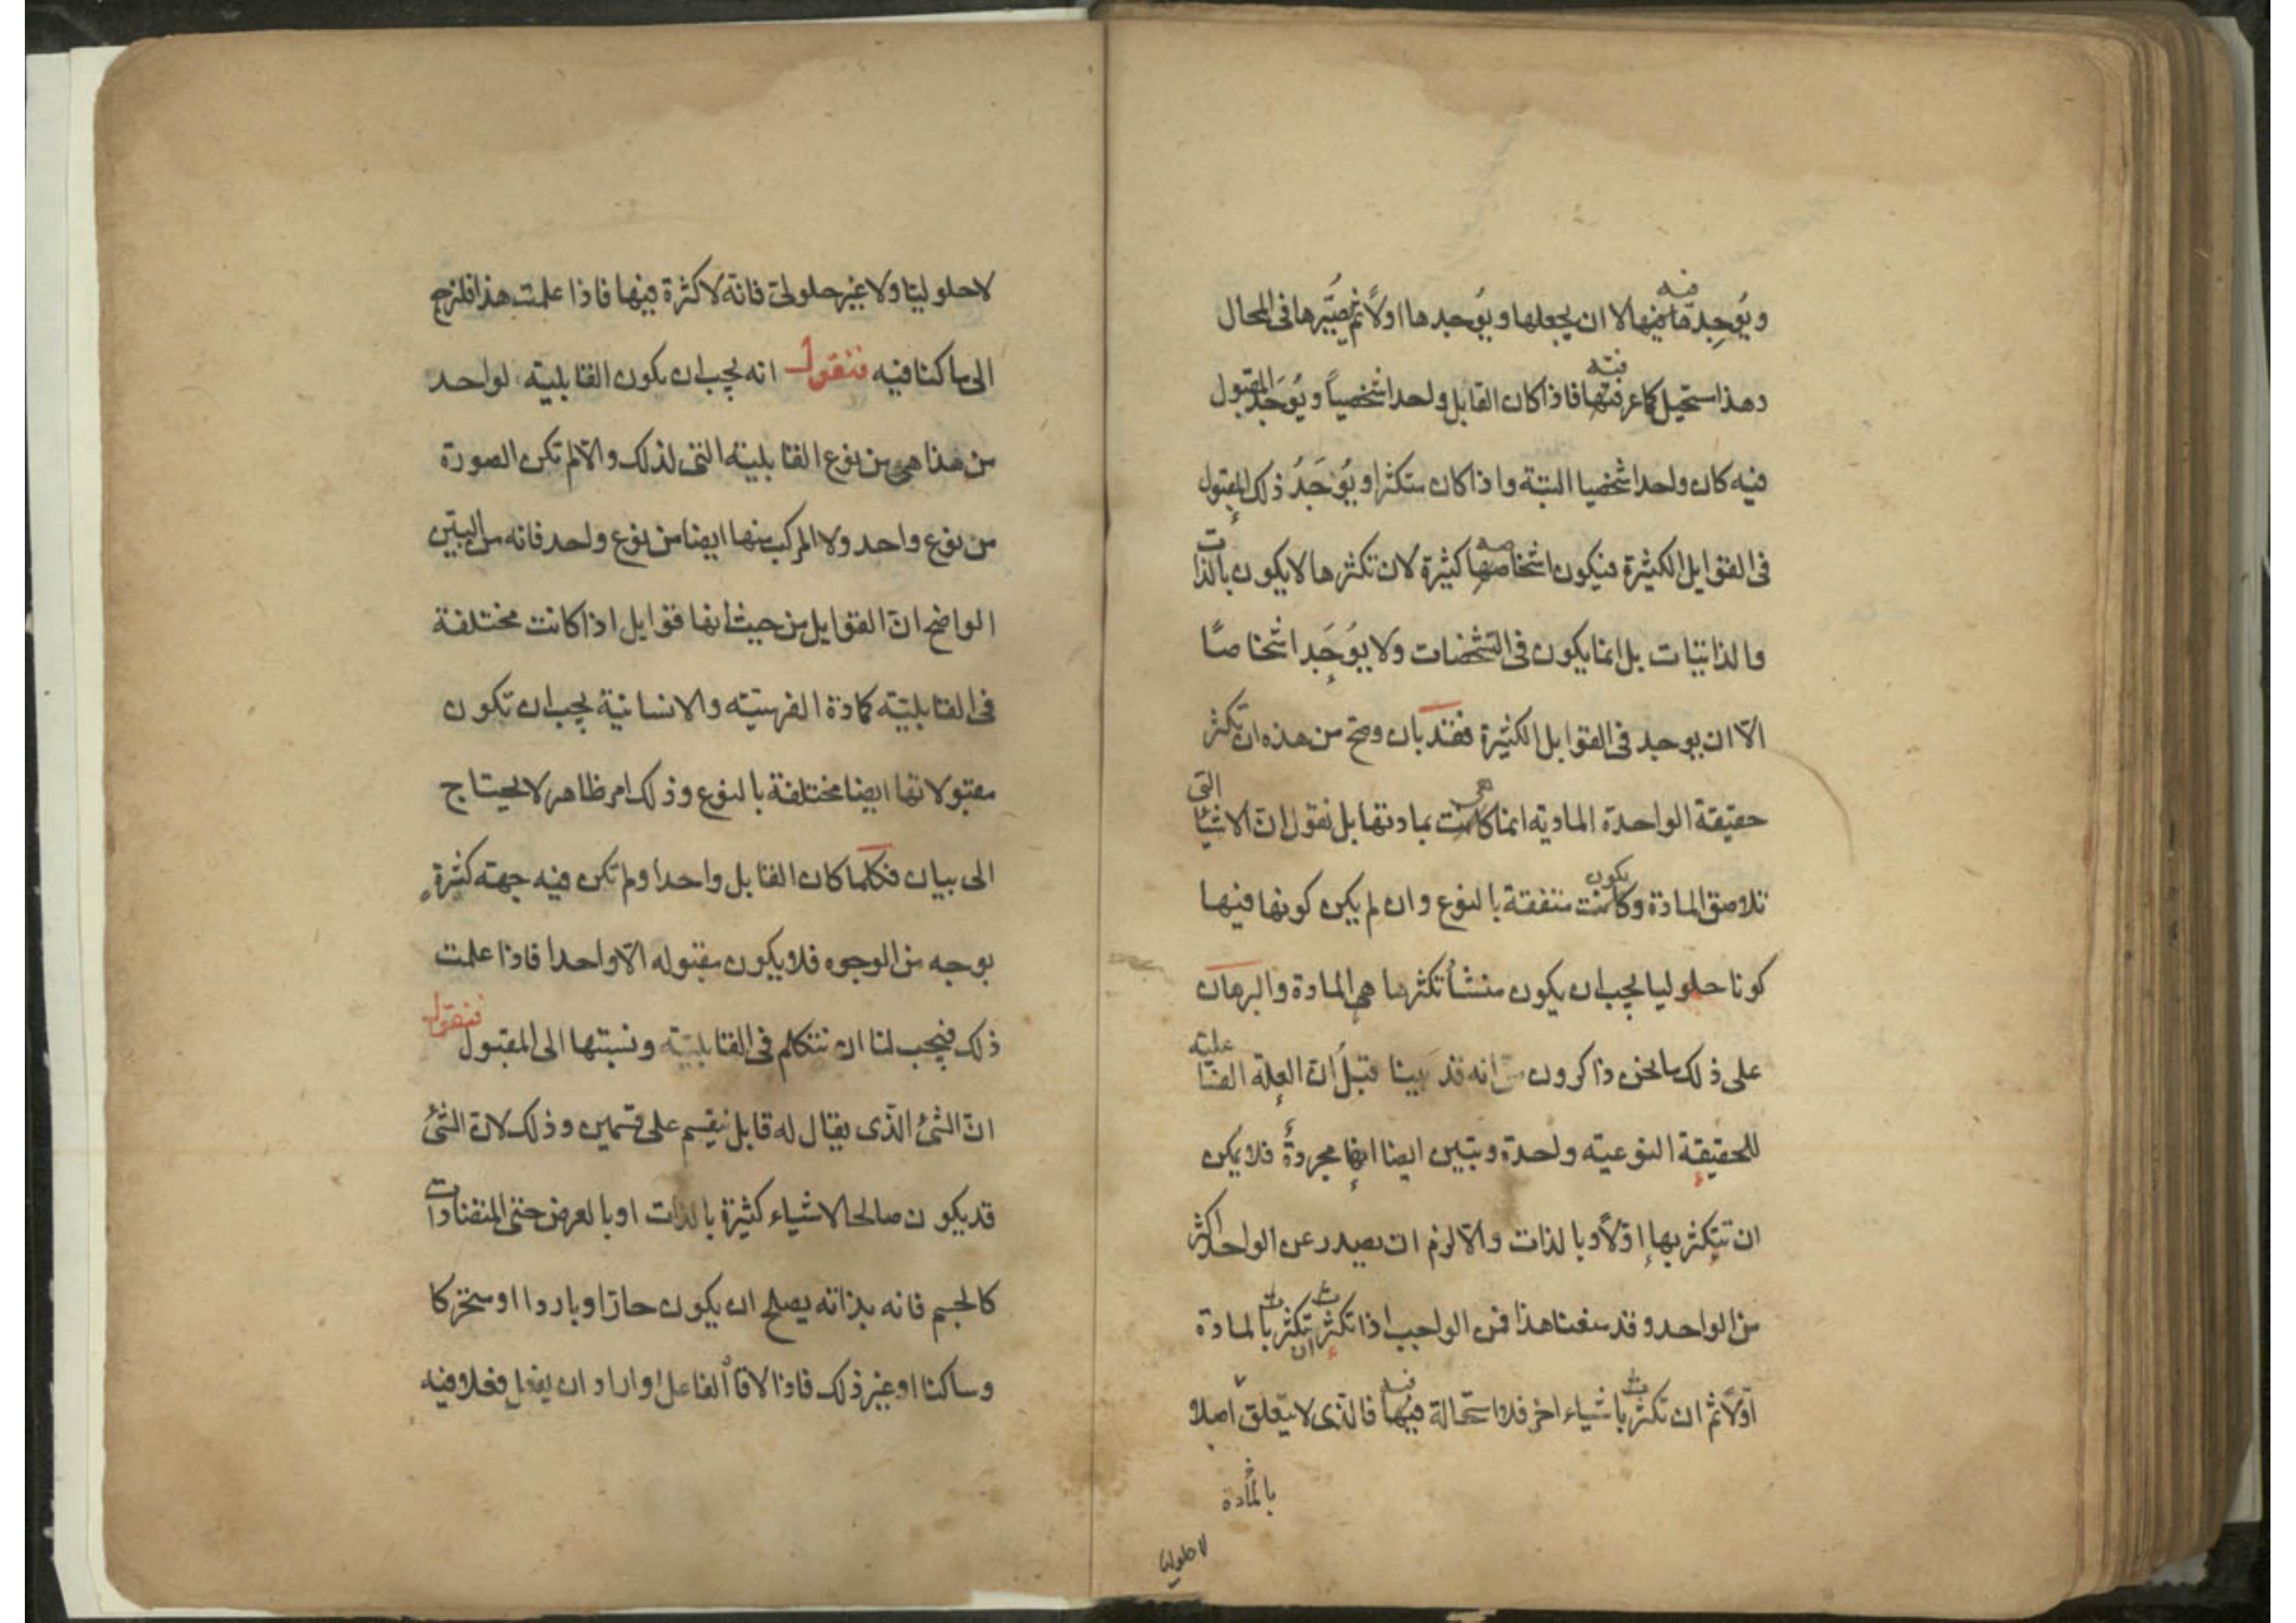 ويُوجِد ما فيها الا ان يجعلها ويُوجدها اولاً ثم يُصيّرها فى المحال
فيه
وهذا مستحيل كما عرفتها فاذا كان القابل واحدا شخصياً ويُوجَد المقبول
فته
فيه كان واحدا شخصيا البتة واذا كان متكثرا ويُوجَدُ ذلك المقبول
فى القوابل الكثيرة فيكون اشخاصها كثيرة لان تكثرها لا يكون بالذات
صه
والذاتيات بل انما يكون فى التشخصات ولا يُوجَد اشخاصًا
الّا ان يوجد فى القوابل الكثيرة فقد بان وصح من هذه ان تكثر
حقيقة الواحدة المادية انما كانت بمادتها بل نقول ان الاشياء التى
هى
تلاصق المادة وكانت متفقة بالنوع وان لم يكن كونها فيها
يكون
كونا حلوليا يجب ان يكون منشأ تكثرها هى المادة والبرهان
على ذلك ما نحن ذاكرون من انه قد بينا قبلُ ان العلة الفاعلية
للحقيقة النوعية واحدة وتبين ايضا انها مجردةٌ فلا يمكن
ان تتكثر بها اوّلاً وبالذات والّا لزم ان يصدر عن الواحد اكثر
من الواحد وقد منعنا هذا فمن الواجب اذا تكثرت ان تكثرت بالمادة
اوّلاً ثم ان تكثرت باشياء اخر فلا استحالة فيها فالذى لا يتعلق اصلا
فيه
بالمادة
لا حلوليا
لا حلوليا ولا غير حلولى فانه لا كثرة فيها فاذا علمت هذا فلنرجع
الى ما كنا فيه فنقول انه يجب ان يكون القابلية لواحد
من هذا هى من نوع القابلية التى لذلك والّا لم تكن الصورة
من نوع واحد ولا المركب منها ايضا من نوع واحد فانه من البيّن
الواضح انّ القوابل من حيث انها قوابل اذا كانت مختلفة
فى القابلية كمادة الفرسيّة والانسانية يجب ان تكون
مقبولاتها ايضا مختلفة بالنوع وذلك امر ظاهر لا يحتاج
الى بيان فكلما كان القابل واحدا ولم تكن فيه جهة كثرة
بوجه من الوجوه فلا يكون مقبوله الّا واحدا فاذا علمت
ذلك فيجب لنا ان نتكلم فى القابلية ونسبتها الى المقبول فنقول
انّ الشئ الّذى يقال له قابل ينقسم على قسمين وذلك لان الشئ
قد يكون صالحا لاشياء كثيرة بالذات او بالعرض حتى المتضادات
كالجسم فانه بذاته يصلح ان يكون حارّا او باردا او متحركا
وساكنا او غير ذلك فاذا لاقا الفاعل واراد ان يفعل فعلا فيه